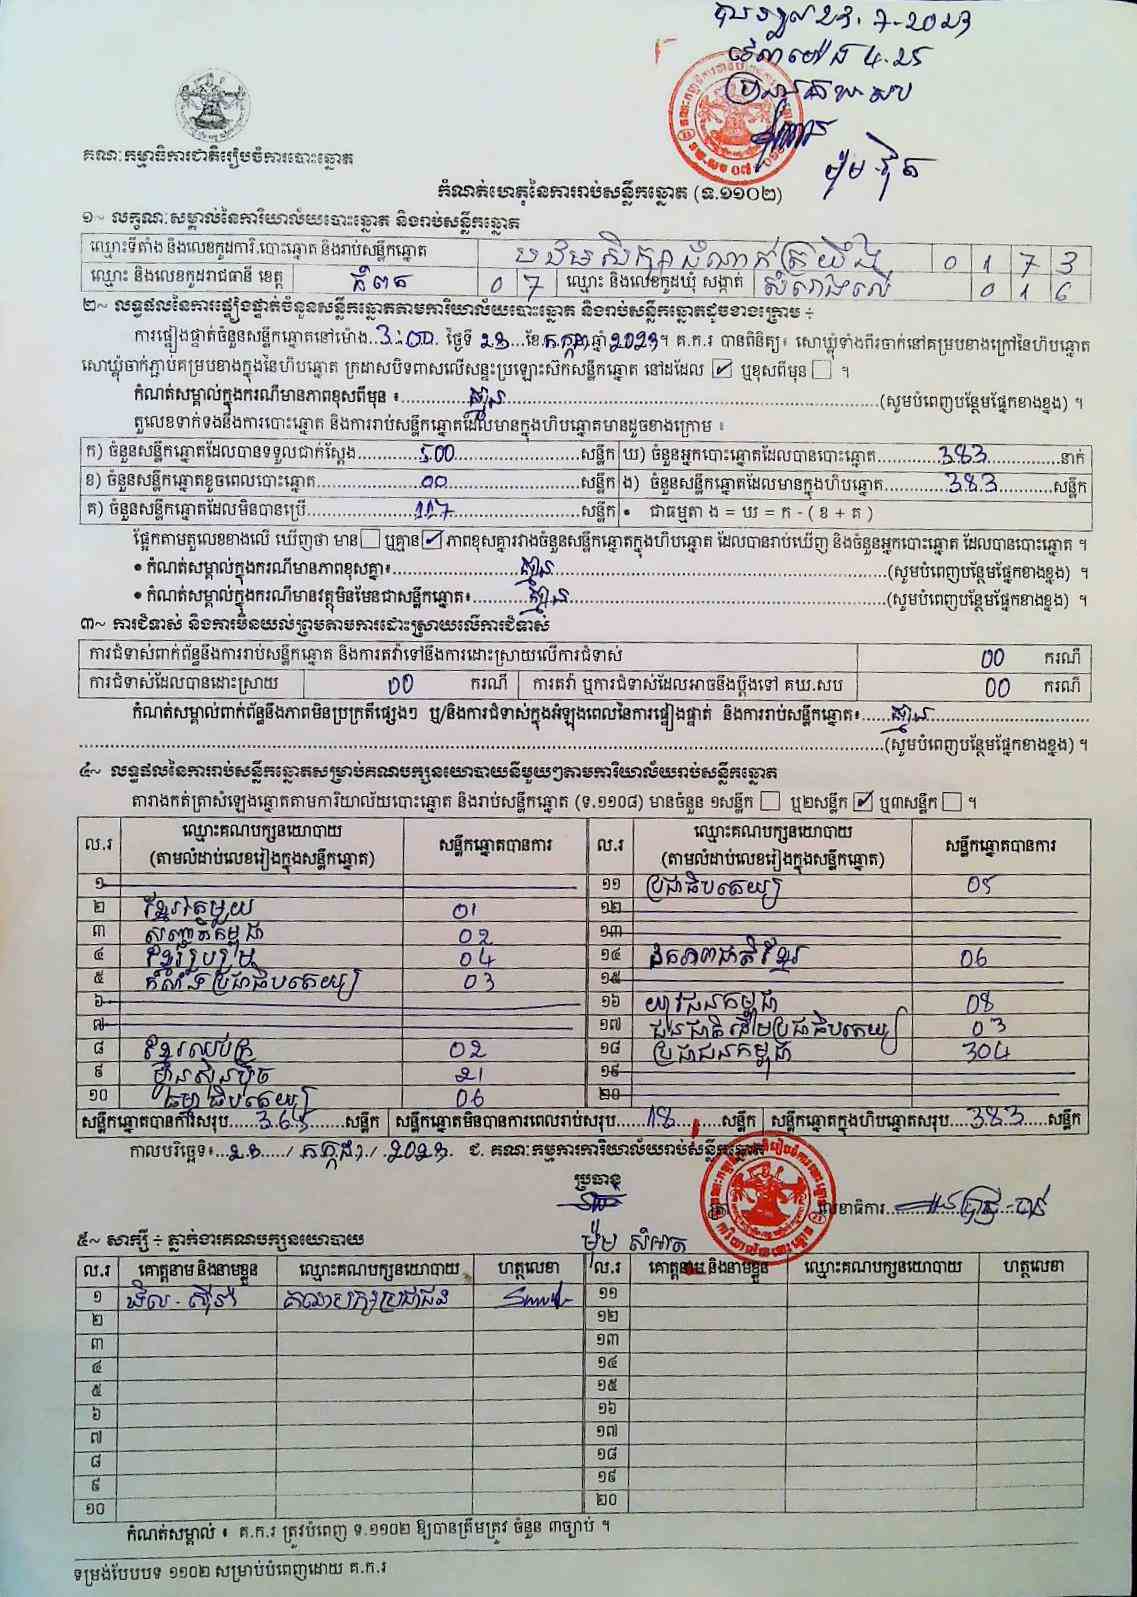 បានទទួល 23.7-2023
វេលាម៉ោង 4.25
គណៈកម្មាធិការជាតិរៀបចំការបោះឆ្នោត
កំណត់ហេតុនៃការរាប់សន្លឹកឆ្នោត (ទ.១១០២)
១~ លក្ខណៈសម្គាល់នៃការិយាល័យបោះឆ្នោត និងរាប់សន្លឹកឆ្នោត
ឈ្មោះទីតាំង និងលេខកូដការិ.បោះឆ្នោត និងរាប់សន្លឹកឆ្នោត បឋមសិក្សាដំណាក់ត្រយឹង 0 1 7 3
ឈ្មោះ និងលេខកូដរាជធានី ខេត្ត កំពត 0 7 ឈ្មោះ និងលេខកូដឃុំ សង្កាត់ សំរោងលើ 0 1 6
២~ លទ្ធផលនៃការផ្ទៀងផ្ទាត់ចំនួនសន្លឹកឆ្នោតតាមការិយាល័យបោះឆ្នោត និងរាប់សន្លឹកឆ្នោតដូចខាងក្រោម ÷
ការផ្ទៀងផ្ទាត់ចំនួនសន្លឹកឆ្នោតនៅម៉ោង 3:00 ថ្ងៃទី 23 ខែ កក្កដា ឆ្នាំ 2023។ គ.ក.រ បានពិនិត្យ៖ សោឃ្លុំទាំងពីរចាក់នៅគម្របខាងក្រៅនៃហិបឆ្នោត
សោឃ្លុំចាក់ភ្ជាប់គម្របខាងក្នុងនៃហិបឆ្នោត ក្រដាសបិទពាសលើសន្ទះប្រឡោះស៊កសន្លឹកឆ្នោត នៅដដែល ☑ ឬខុសពីមុន ☐ ។
កំណត់សម្គាល់ក្នុងករណីមានភាពខុសពីមុន ៖ គ្មាន (សូមបំពេញបន្ថែមផ្នែកខាងខ្នង) ។
តួលេខទាក់ទងនឹងការបោះឆ្នោត និងការរាប់សន្លឹកឆ្នោតដែលមានក្នុងហិបឆ្នោតមានដូចខាងក្រោម ៖
ក) ចំនួនសន្លឹកឆ្នោតដែលបានទទួលជាក់ស្តែង 500 សន្លឹក ឃ) ចំនួនអ្នកបោះឆ្នោតដែលបានបោះឆ្នោត 383 នាក់
ខ) ចំនួនសន្លឹកឆ្នោតខូចពេលបោះឆ្នោត 00 សន្លឹក ង) ចំនួនសន្លឹកឆ្នោតដែលមានក្នុងហិបឆ្នោត 383 សន្លឹក
គ) ចំនួនសន្លឹកឆ្នោតដែលមិនបានប្រើ 117 សន្លឹក • ជាធម្មតា ង = ឃ = ក - ( ខ + គ )
ផ្អែកតាមតួលេខខាងលើ ឃើញថា មាន ☐ ឬគ្មាន ☑ ភាពខុសគ្នារវាងចំនួនសន្លឹកឆ្នោតក្នុងហិបឆ្នោត ដែលបានរាប់ឃើញ និងចំនួនអ្នកបោះឆ្នោត ដែលបានបោះឆ្នោត ។
• កំណត់សម្គាល់ក្នុងករណីមានភាពខុសគ្នា៖ គ្មាន (សូមបំពេញបន្ថែមផ្នែកខាងខ្នង) ។
• កំណត់សម្គាល់ក្នុងករណីមានវត្ថុមិនមែនជាសន្លឹកឆ្នោត៖ គ្មាន (សូមបំពេញបន្ថែមផ្នែកខាងខ្នង) ។
៣~ ការជំទាស់ និងការមិនយល់ព្រមតាមការដោះស្រាយលើការជំទាស់
ការជំទាស់ពាក់ព័ន្ធនឹងការរាប់សន្លឹកឆ្នោត និងការតវ៉ាទៅនឹងការដោះស្រាយលើការជំទាស់ 00 ករណី
ការជំទាស់ដែលបានដោះស្រាយ 00 ករណី ការតវ៉ា ឬការជំទាស់ដែលអាចនឹងប្តឹងទៅ គឃ.សប 00 ករណី
កំណត់សម្គាល់ពាក់ព័ន្ធនឹងភាពមិនប្រក្រតីផ្សេងៗ ឬ/និងការជំទាស់ក្នុងអំឡុងពេលនៃការផ្ទៀងផ្ទាត់ និងការរាប់សន្លឹកឆ្នោត៖ គ្មាន
(សូមបំពេញបន្ថែមផ្នែកខាងខ្នង) ។
៤~ លទ្ធផលនៃការរាប់សន្លឹកឆ្នោតសម្រាប់គណបក្សនយោបាយនីមួយៗតាមការិយាល័យរាប់សន្លឹកឆ្នោត
តារាងកត់ត្រាសំឡេងឆ្នោតតាមការិយាល័យបោះឆ្នោត និងរាប់សន្លឹកឆ្នោត (ទ.១១០៨) មានចំនួន ១សន្លឹក ☐ ឬ២សន្លឹក ☑ ឬ៣សន្លឹក ☐ ។
ល.រ ឈ្មោះគណបក្សនយោបាយ (តាមលំដាប់លេខរៀងក្នុងសន្លឹកឆ្នោត) សន្លឹកឆ្នោតបានការ ល.រ ឈ្មោះគណបក្សនយោបាយ (តាមលំដាប់លេខរៀងក្នុងសន្លឹកឆ្នោត) សន្លឹកឆ្នោតបានការ
១ ១១ ប្រជាធិបតេយ្យ 05
២ ខ្មែរតែមួយ 01 ១២
៣ សញ្ជាតិកម្ពុជា 02 ១៣
៤ ខ្មែររួបរួម 04 ១៤ ឯកភាពជាតិខ្មែរ 06
៥ កំលាំងប្រជាធិបតេយ្យ 03 ១៥
៦ ១៦ យុវជនកម្ពុជា 08
៧ ១៧ ជនជាតិដើមប្រជាធិបតេយ្យ 03
៨ ខ្មែរឈប់ក្រ 02 ១៨ ប្រជាជនកម្ពុជា 304
៩ ហ្វ៊ុនស៊ិនប៉ិច 21 ១៩
១០ ធម្មាធិបតេយ្យ 06 ២០
សន្លឹកឆ្នោតបានការសរុប 365 សន្លឹក សន្លឹកឆ្នោតមិនបានការពេលរាប់សរុប 18 សន្លឹក សន្លឹកឆ្នោតក្នុងហិបឆ្នោតសរុប 383 សន្លឹក
កាលបរិច្ឆេទ៖ 23 / កក្កដា / 2023. ជ. គណៈកម្មការការិយាល័យរាប់សន្លឹកឆ្នោត
ប្រធាន
លេខាធិការ
ម៉ុម សំអាត
៥~ សាក្សី ÷ ភ្នាក់ងារគណបក្សនយោបាយ
ល.រ គោត្តនាម និងនាមខ្លួន ឈ្មោះគណបក្សនយោបាយ ហត្ថលេខា ល.រ គោត្តនាម និងនាមខ្លួន ឈ្មោះគណបក្សនយោបាយ ហត្ថលេខា
១ គណបក្សប្រជាជន ១១
២ ១២
៣ ១៣
៤ ១៤
៥ ១៥
៦ ១៦
៧ ១៧
៨ ១៨
៩ ១៩
១០ ២០
កំណត់សម្គាល់ ៖ គ.ក.រ ត្រូវបំពេញ ទ.១១០២ ឱ្យបានត្រឹមត្រូវ ចំនួន ៣ច្បាប់ ។
ទម្រង់បែបបទ ១១០២ សម្រាប់បំពេញដោយ គ.ក.រ